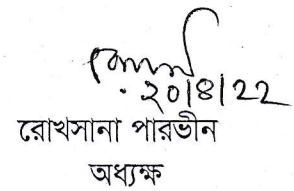 ২০/৪/22
রোখসানা পারভীন
অধ্যক্ষ